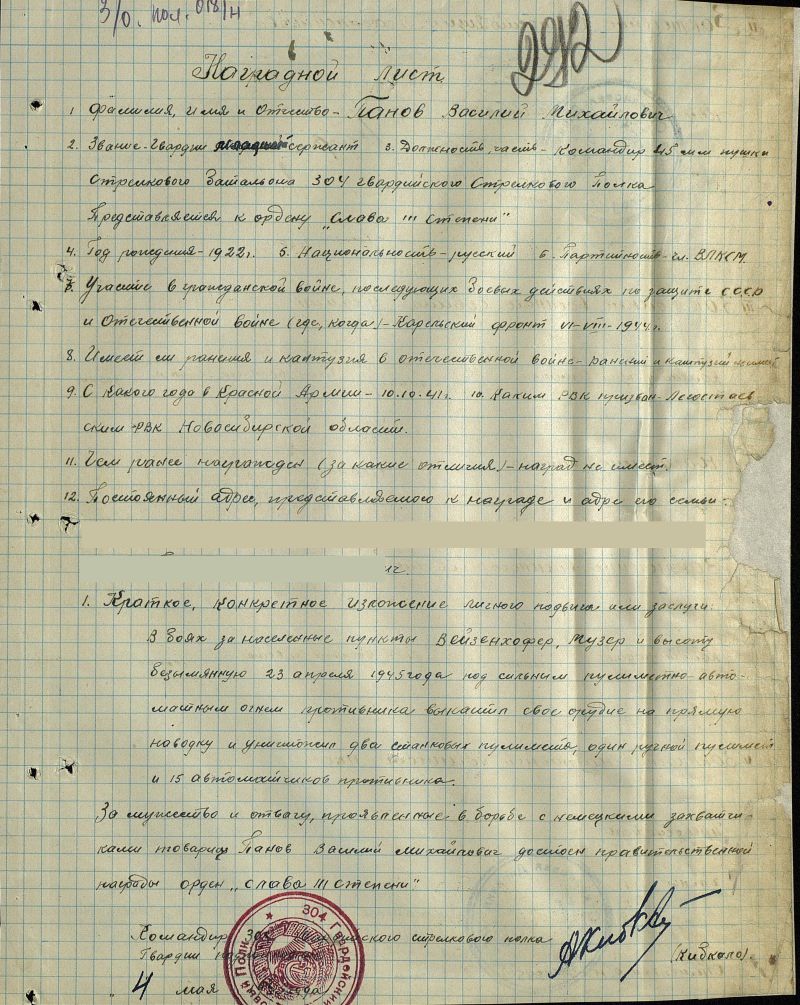 3/о. пол. 018/н
292
Наградной лист
1. Фамилия, имя и Отчество - Панов Василий Михайлович
2. Звание - Гвардии сержант 3. Должность, часть - Командир 45 мм пушки
Стрелкового Батальона 304 гвардийского Стрелкового Полка
Представляется к ордену „Слава III Степени"
4. Год рождения - 1922 г. 5. Национальность - русский 6. Партийность - чл. ВЛКСМ.
7. Участие в гражданской войне, последующих боевых действиях по защите СССР
и Отечественной войне (где, когда) - Карельский фронт VI-VIII-1944 г.
8. Имеет ли ранения и кантузия в отечественной войне - ранений и кантузий не имеет
9. С какого года в Красной Армии - 10.10.41 г. 10. Каким РВК призван - Легостаев
ским РВК Новосибирской области.
11. Чем ранее награжден (за какие отличия) - наград не имеет.
12. Постоянный адрес, представляемого к награде и адрес его семьи -
1. Краткое, конкретное изложение личного подвига или заслуги
В боях за населенные пункты Вейзенхофер, Музер и высоту
безымянную 23 апреля 1945 года под сильним пулиметно-авто-
матным огнем противника выкатил свое орудие на прямую
наводку и уничтожил два станковых пулимета, один ручной пулимет
и 15 автоматчиков противника.
За мужество и отвагу, проявленные в борьбе с немецкими захватчи-
ками товарищ Панов Василий Михайлович достоен правительственной
награды орден „Слава III степени"
Командир 304 стрелкового полка
Гвардии
(Кивкало).
4 мая года
304 Гвардейский